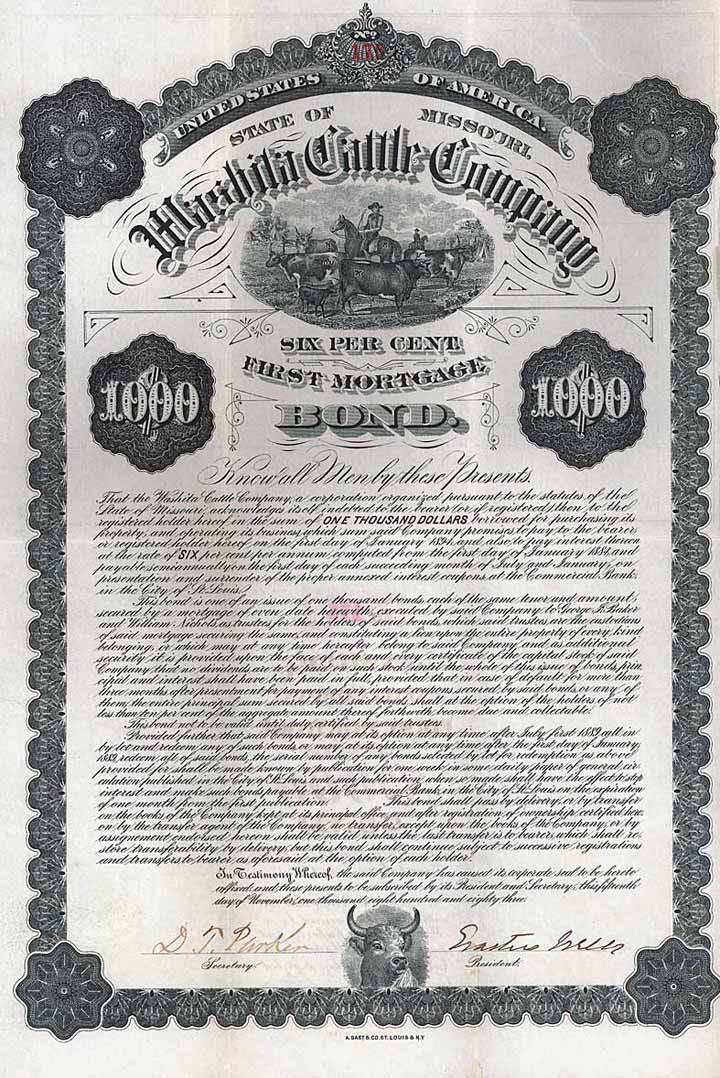 No
175
UNITED STATES OF AMERICA.
STATE OF MISSOURI.
Washita Cattle Company
SIX PER CENT.
FIRST MORTGAGE
1000 BOND. 1000
Know all Men by these Presents.
That the Washita Cattle Company, a corporation organized pursuant to the statutes of the
State of Missouri, acknowledges itself indebted to the bearer (or if registered) then to the
registered holder hereof in the sum of ONE THOUSAND DOLLARS borrowed for purchasing its
property, and operating its business, which sum said Company promises to pay to the bearer
or registered holder hereof on the first day of January 1894, and also to pay interest thereon
at the rate of SIX per cent per annum, computed from the first day of January 1884, and
payable semi annually on the first day of each succeeding month of July and January, on
presentation and surrender of the proper annexed interest coupons, at the Commercial Bank
in the City of St. Louis.
This bond is one of an issue of one thousand bonds, each of the same tenor and amount,
secured by a mortgage of even date herewith, executed by said Company to George F. Baker
and William Nichols, as trustees for the holders of said bonds, which said trustees are the custodians
of said mortgage securing the same, and constituting a lien upon the entire property of every kind
belonging, or which may at any time hereafter belong to said Company, and as additional
security it is provided upon the face of each and every certificate of the capital stock of said
Company that no dividends are to be paid on such stock until the whole of this issue of bonds, prin
cipal and interest shall have been paid in full, provided that in case of default for more than
three months after presentment for payment of any interest coupons secured by said bonds or any of
them, the entire principal sum secured by all said bonds shall at the option of the holders of not
less than ten per cent of the aggregate amount thereof forthwith become due and collectable.
This bond not to be valid until duly certified by said trustees.
Provided further, that said Company may at its option at any time after July first 1889, call in
by lot and redeem any of such bonds, or may at its option at any time after the first day of January,
1889, redeem all of said bonds, the serial number of any bonds selected by lot for redemption as above
provided for shall be made known by publication for one week in some daily paper of general cir
culation published in the City of St. Louis and such publication, when so made shall have the effect to stop
interest and make such bonds payable at the Commercial Bank, in the City of St. Louis on the expiration
of one month from the first publication. This bond shall pass by delivery, or by transfer
on the books of the Company kept at its principal office, and after registration of ownership certified hereon
on by the transfer agent of the Company, no transfer, except upon the books of the Company, or by
assignment endorsed hereon shall be valid, unless the last transfer is to bearer, which shall re-
store transferability by delivery, but this bond shall continue subject to successive registrations
and transfers to bearer as aforesaid at the option of each holder.
In Testimony Whereof, the said Company has caused its corporate seal to be hereto
affixed and these presents to be subscribed by its President and Secretary, this fifteenth
day of November, one thousand eight hundred and eighty three.
D. T. Parker Erastus Wells
Secretary. President.
A. GAST & CO. ST. LOUIS & N.Y